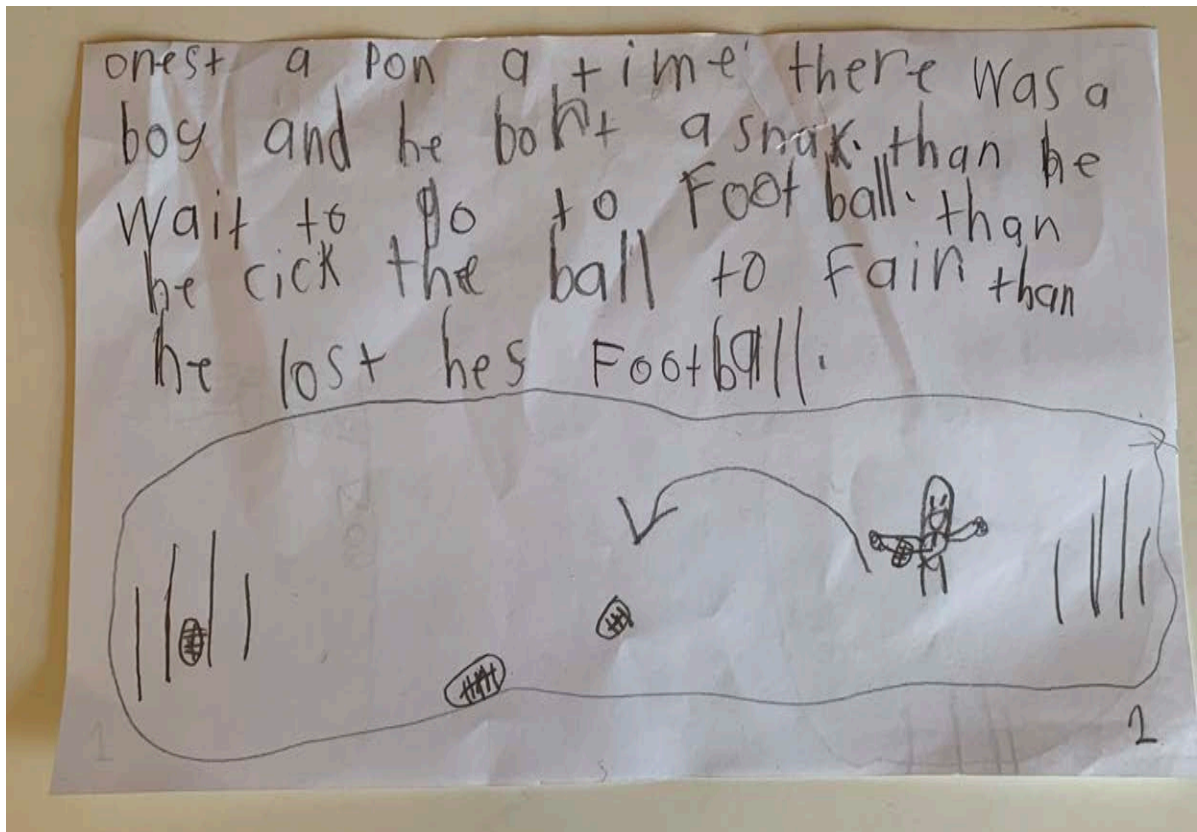 onest a Pon a time there was a
boy and he boht a snak. than he
wait to go to Football. than
he cick the ball to fair than
he lost hes Football.
2